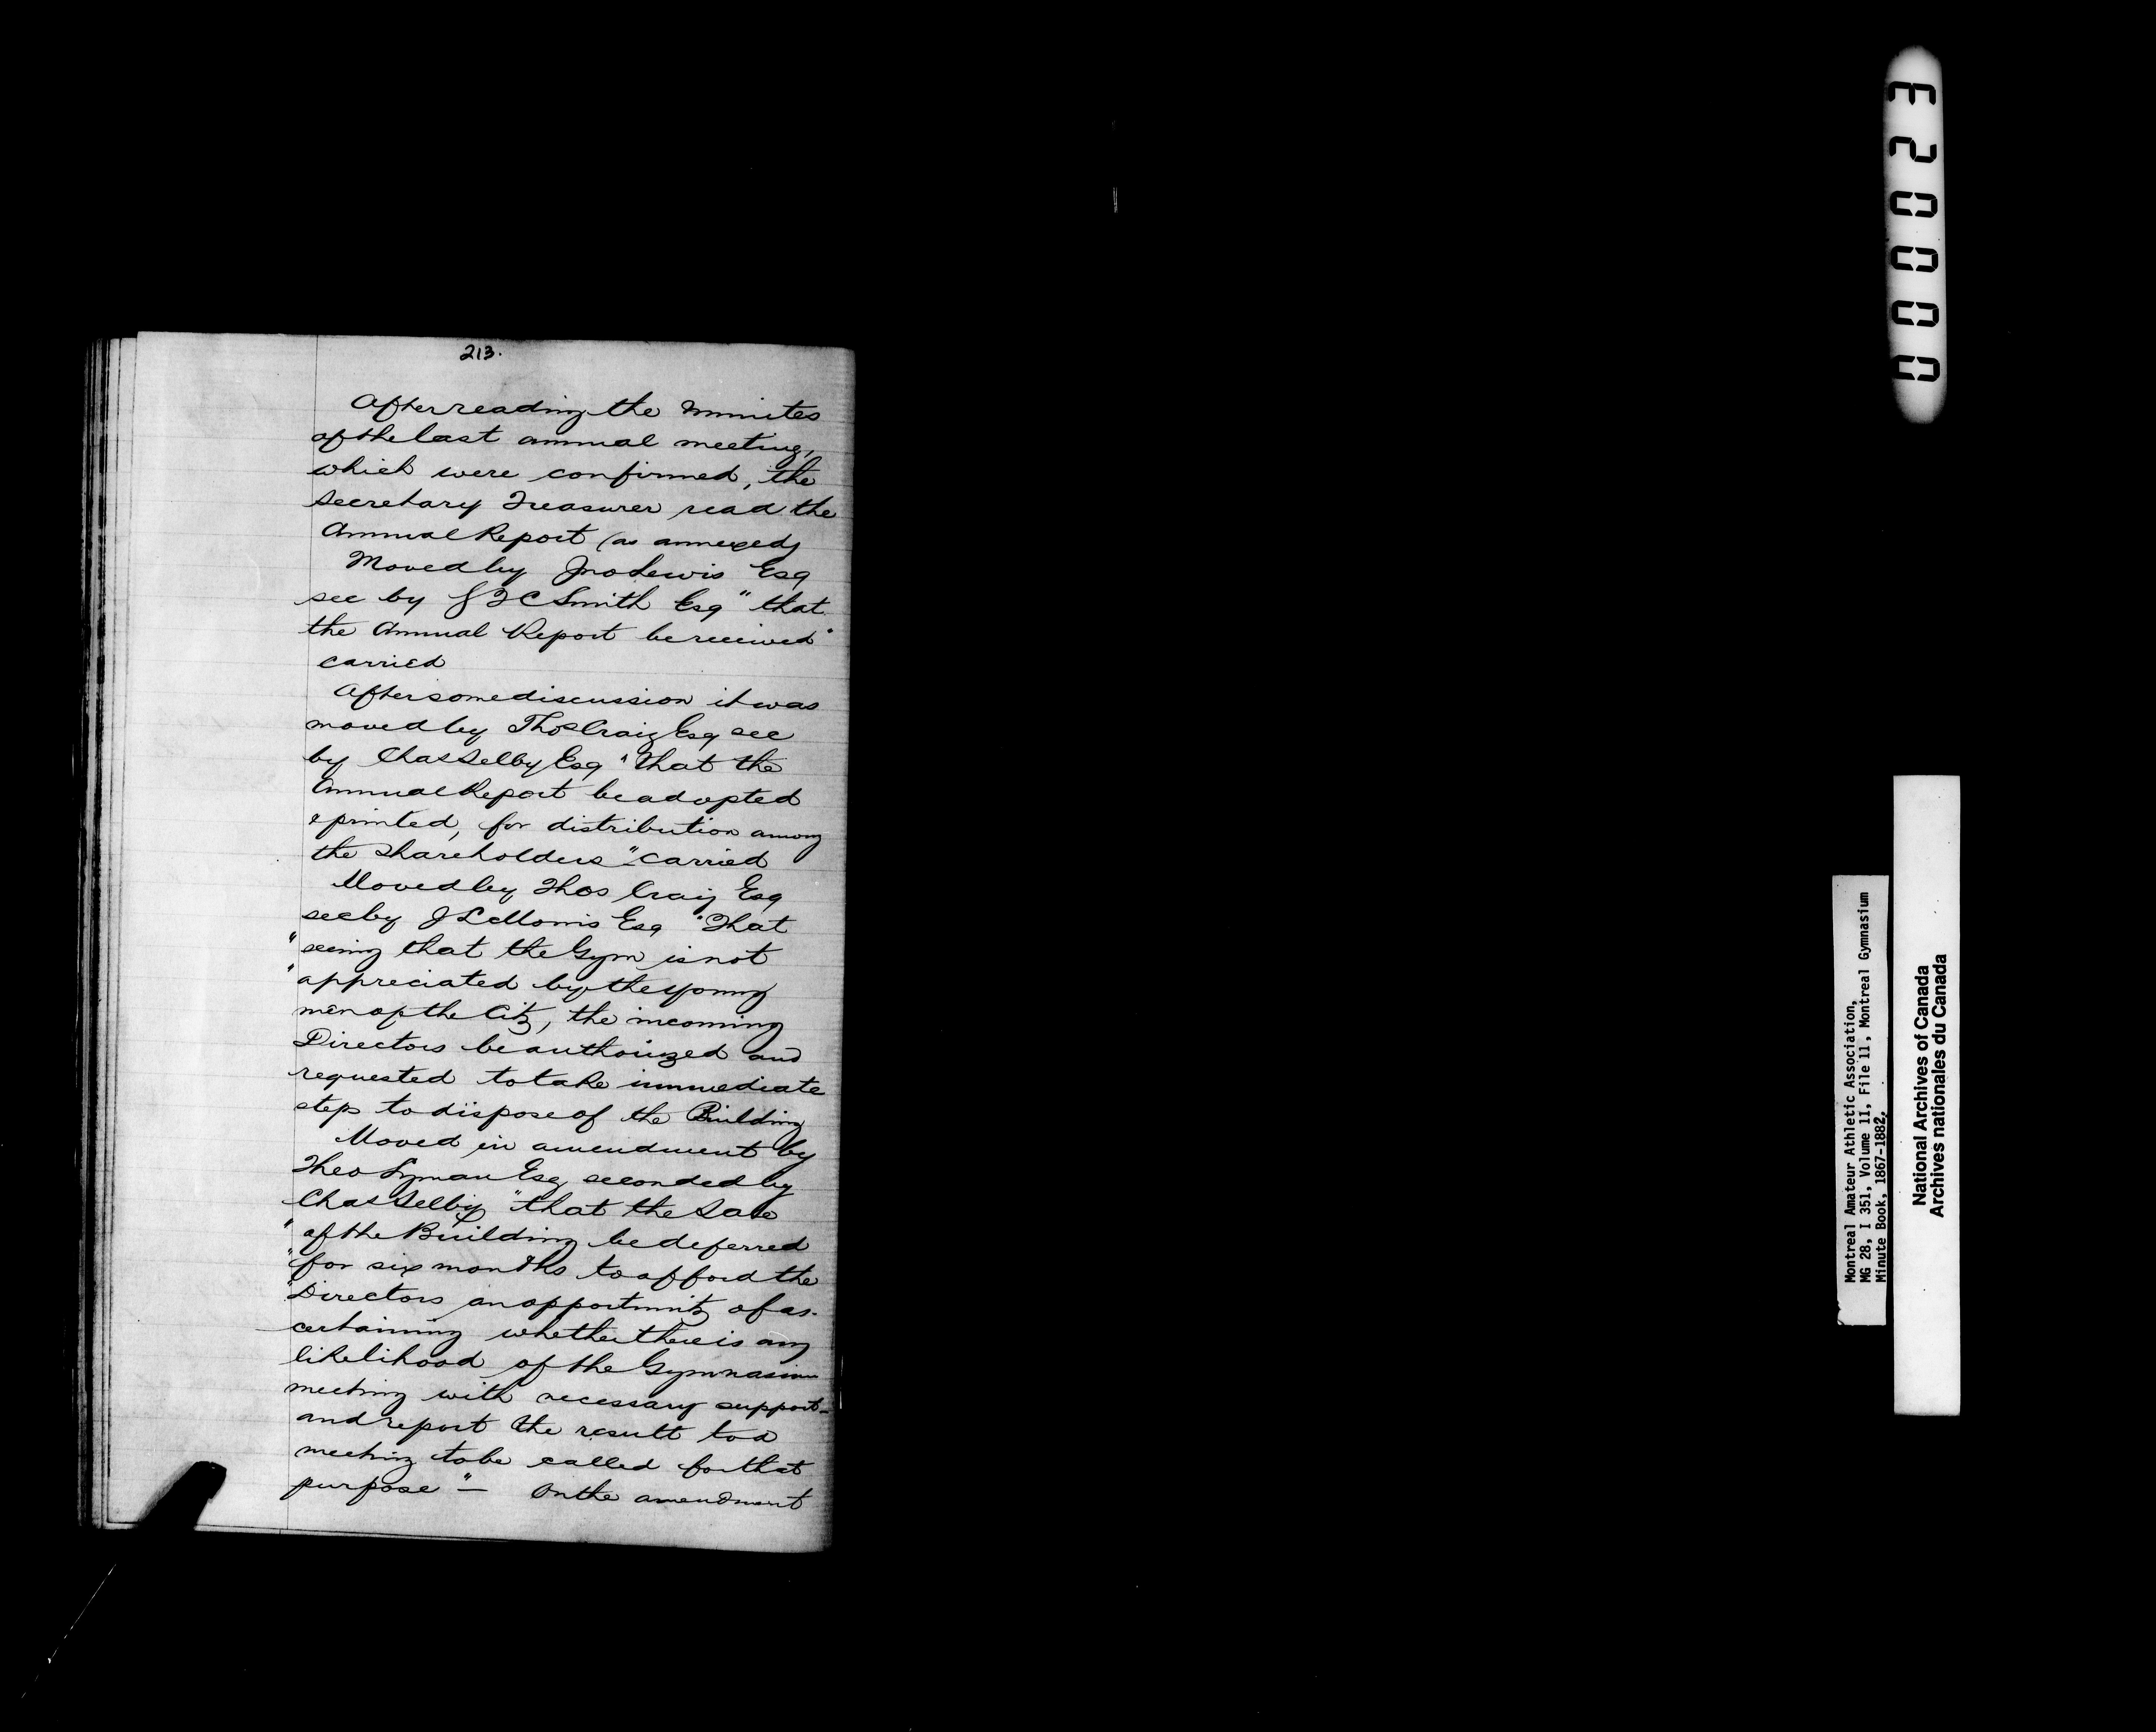 213.
After reading the minutes
of the last annual meeting,
which were confirmed, the
Secretary Treasurer read the
Annual Report (as annexed)
Moved by Jno Lewis Esq
sec by J F C Smith Esq " that
the Annual Report be received "
carried
After some discussion it was
moved by Thos Craig Esq sec
by Chas Selby Esq " That the
Annual Report be adopted
& printed, for distribution among
the Shareholders " carried
Moved by Thos Craig Esq
sec by J L Morris Esq " That
" seeing that the Gym is not
" appreciated by the young
men of the City, the incoming
Directors be authorized and
requested to take immediate
steps to dispose of the Building
Moved in amendment by
Theo Lyman Esq seconded by
Chas Selby " that the Sale
" of the Building be deferred
" for six months to afford the
" Directors an opportunity of as-
certaining whether there is any
likelihood of the Gymnasium
meeting with necessary support-
and report the result to a
meeting to be called for that
purpose " — On the amendment
F20000
Montreal Amateur Athletic Association,
MG 28, I 351, Volume 11, File 11, Montreal Gymnasium
Minute Book, 1867-1882.
National Archives of Canada
Archives nationales du Canada